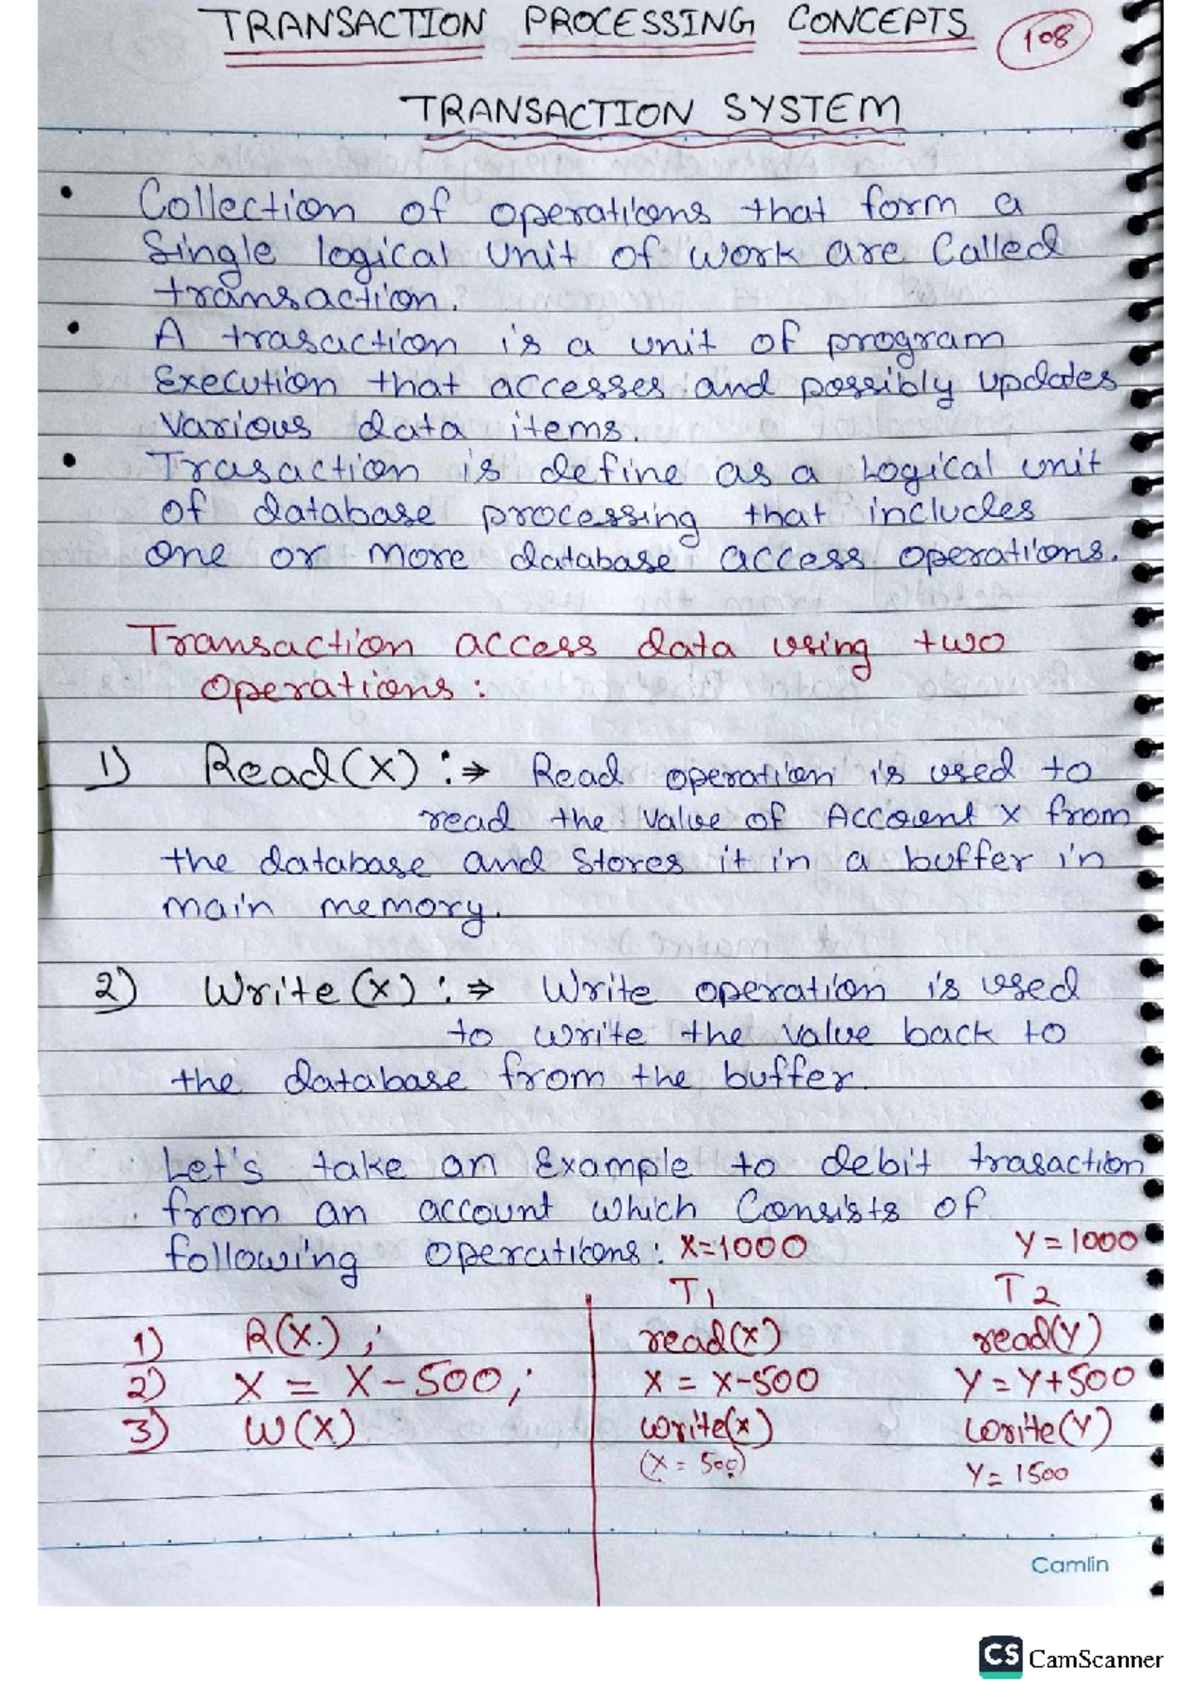 TRANSACTION PROCESSING CONCEPTS 108
TRANSACTION SYSTEM
• Collection of operations that form a
Single logical Unit of work are Called
transaction.
• A trasaction is a unit of program
Execution that accesses and possibly updates
Various data items.
• Trasaction is define as a Logical unit
of database processing that includes
one or more database access operations.
Transaction access data using two
operations:
1) Read(X) :⇒ Read operation is used to
read the Value of Account X from
the database and Stores it in a buffer in
main memory.
2) Write(X) :⇒ Write operation is used
to write the value back to
the database from the buffer.
Let's take an Example to debit trasaction
from an account which Consists of
following operations: X=1000 Y=1000
T1 T2
1) R(X.) ; read(X) read(Y)
2) X = X-500; X = X-500 Y=Y+500
3) W(X) write(X) write(Y)
(X = 500) Y= 1500
Camlin
CS CamScanner